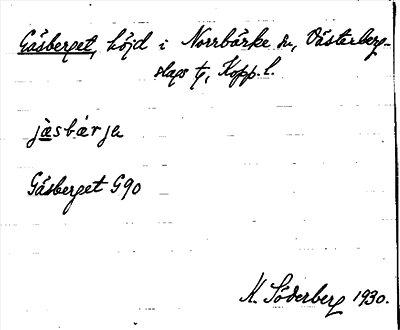 Gäsberget, höjd i Norrbärke sn, Västerberg-
slags tg, Kopp. l.
jäsbärja
Gäsberget G90
K. Söderberg 1930.